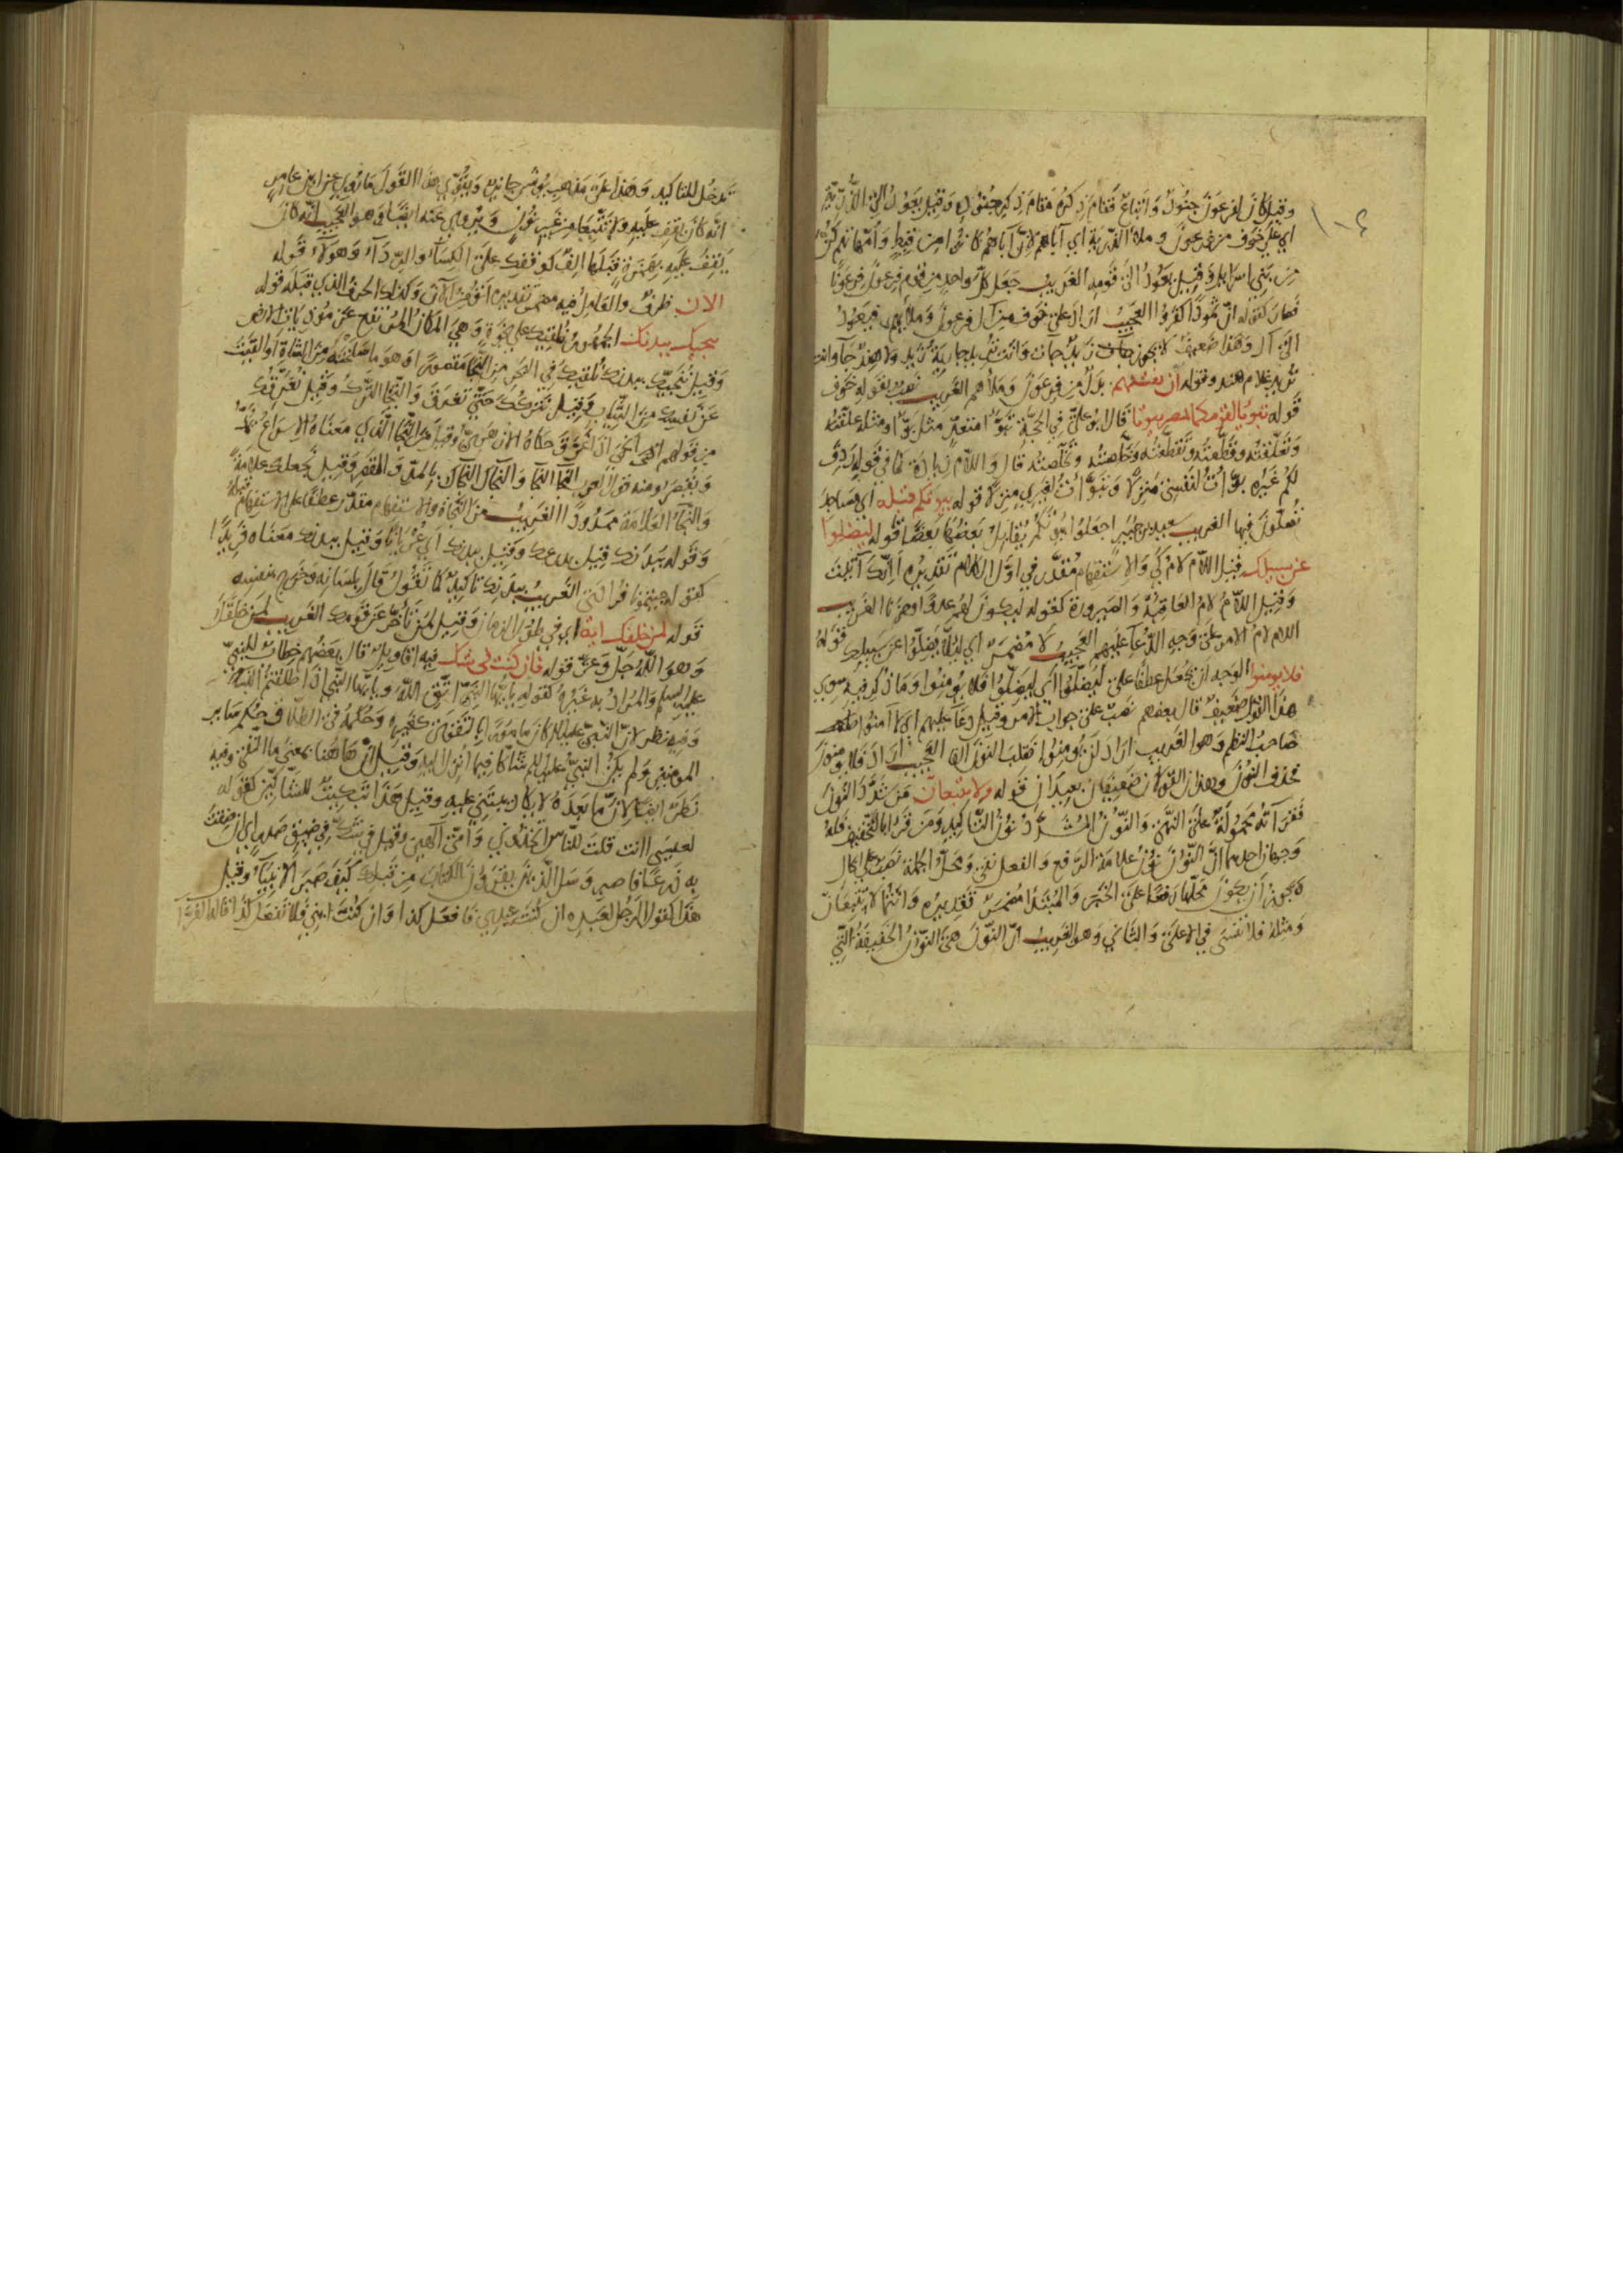 ١٠٤
وقيل كان لفرعون جنود واتباع فقام ذكره مقام ذكر جنوده وقيل يعود الى الذرية
اي على خوف من فرعون وملأ الذرية اي آباهم لان آباهم كانوا من قبط وامهاتهم كن
من بني اسرايل وقيل يعود الى قومه الغريب جعل كل واحد من قوم فرعون فرعونا
فصار كقوله ان ثمودا كفروا العجيب اراد على خوف من آل فرعون وملأيهم فيعود
الى آل وهذا ضعيف لا يجوز جات زيد جات وانت تريد جارية زيد ولا هند جا وانت
تريد غلام هند وقوله ان يفتنهم بدل من فرعون وملأهم الغريب نصب بقوله خوف
قوله تبوّيا لقومكما بمصر بيوتا قال بو علي في الحجة تبوّا متعدّ مثل بوّا ومثله علقته
وتعلقته وقطعته وتقطعته وخلصته وتخلصته قال واللام زيادة كما في قوله ردف
لكم غيره بوّات لنفسي منزلا وتبوّات لغيري منزلا قوله بيوتكم قبلة اي مساجد
تصلّون فيها الغريب سعيد بن جبير اجعلوا بيوتكم يقابل بعضها بعضا قوله ليضلوا
عن سبيلك قيل اللام لام كي والاستفهام مقدّر في اوّل الكلام تقديره اانك آتيت
وقيل اللام لام العاقبة والصيرورة كقوله ليكون لهم عدوا وحزنا الغريب
اللام لام الامر على وجه الدعآ عليهم العجيب لا مضمر اي لئلا يضلّوا عن سبيلك قوله
فلا يومنوا الوجه ان يجعل عطفا على ليضلّوا اي ليضلّوا فلا يومنوا وما ذكر فيه سوى
هذا القول ضعيف قال بعضهم نصب على جواب الامر وقيل دعآ عليهم اي لا آمنوا
صاحب النظم وهو الغريب اراد لن يومنوا فقلب النون الفا العجيب اراد فلا يومنون
فحذف النون وهذان القولان ضعيفان بعيدان قوله ولا تتبعانّ من شدّد النون
فقرآته محمولة على النهي والنون المشدّد نون التاكيد ومن قرا بالتخفيف فله
وجهان احدهما انّ النون نون علامة الرفع والفعل نفي ومحلّ الجملة نصب على الحال
ويجوز ان يكون محلّها رفعا على الخبر والمبتدا مضمر تقديره وانتما لا تتبعان
ومثله فلا تنسى في الاعلى والثاني وهو الغريب انّ النون هي النون الخفيفة التي
تدخل للتاكيد وهذا على مذهب يونس جايز ويقوّي هذا القول ما روي عن ابن عامر
انه كان يقف عليه ولا تتبعا من غير نون ويروى عنه ايضا وهو العجيب انه كان
يقف عليه بهمزة قبلها الف كوقفك على الكسآ والردآ وهولا قوله
الان ظرف والعامل فيه مضمر تقديره اتؤمن الان وكذلك الحرف الذي قبله قوله
ننجيك ببدنك الجمهور نلقيك على نجوة وهي المكان المرتفع عن موذيات الارض
وقيل ننجيك ببدنك نلقيك في البحر من النجا مقصورا وهو ما سلخته من الشاة او القيت
عن نفسك من الثياب وقيل نتركك حتى تغرق والنجا الترك وقيل نغرقك
من قولهم انجى اذا غرق حكاه الازهري وقيل من النجا الذي معناه الاسراع يمدّ
ويقصر ومنه قول العرب النجا النجا والنجاك النجاك بالمدّ والقصر وقيل نجعلك علامة
والنجآ العلامة ممدودا الغريب من النجاة والاستفهام مقدّر عطفا على الاستفهام قبله
وقوله ببدنك قيل بدرعك وقيل ببدنك اي عريانا وقيل ببدنك معناه فريدا
كقوله جيتمونا فرادى الغريب ببدنك تاكيد كما تقول قال بلسانه وخرج بنفسه
قوله لمن خلفك اية اي في طول الزمان وقيل لمن تأخّر عن قومك الغريب لمن خلقك
وهو الله جلّ وعزّ قوله فان كنت في شك فيه اقاويل قال بعضهم خطاب للنبي
عليه السلم والمراد به غيره كقوله يا ايها النبي اتّق الله ويا ايها النبي اذا طلقتم النسا
وفيه نظر لانّ النبي عليه السلم كان مامورا بالتقوى كغيره وحكمه في الطلاق حكم ساير
المومنين ولم يكن النبي عليه السلم شاكا فيما انزل اليه وقيل ان هاهنا بمعنى ما النفي وفيه
نظر ايضا لانّ ما بعده لا يكاد يبتني عليه وقيل هذا تبكيت للشاكّين كقوله
لعيسى اانت قلت للناس اتخذوني وامّي الهين وقيل في شك في ضيق صدر اي ان ضقت
به ذرعا فاصبر وسل الذين يقرؤن الكتاب من قبلك كيف صبر الانبيآ وقيل
هذا كقول الرجل لعبده ان كنت عبدي فافعل كذا وان كنت ابني فلا تفعل كذا قاله الفرّآ